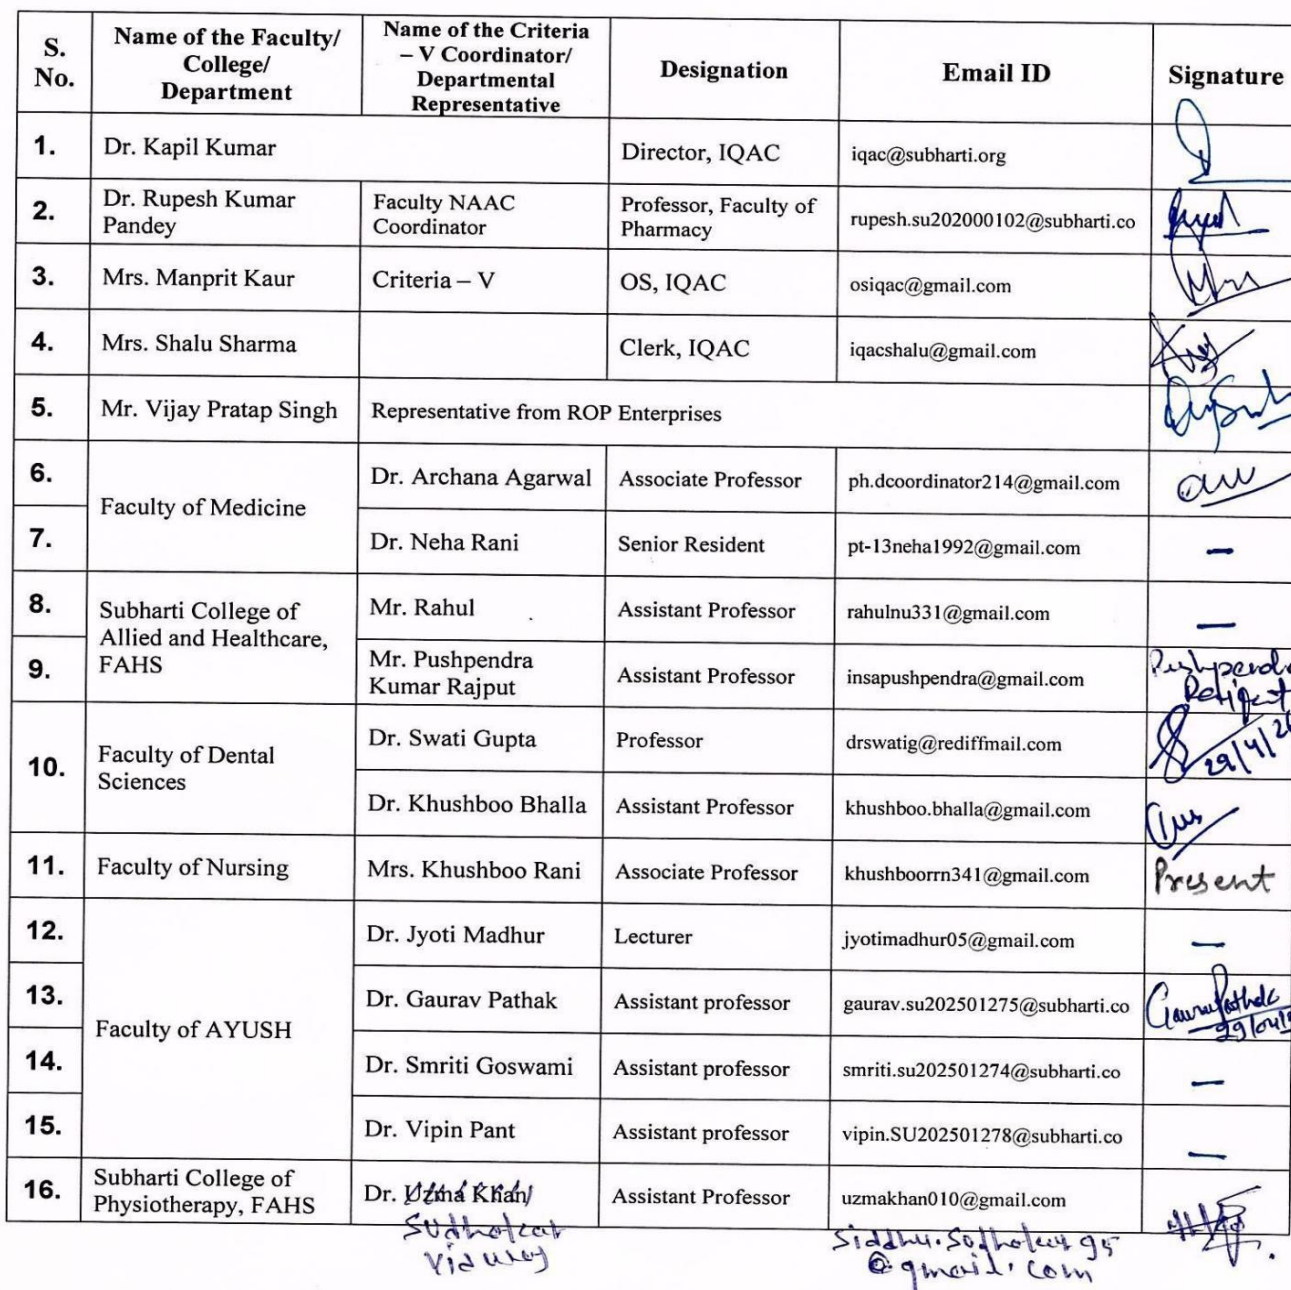 S. No.
Name of the Faculty/ College/ Department
Name of the Criteria – V Coordinator/ Departmental Representative
Designation
Email ID
Signature
1. Dr. Kapil Kumar Director, IQAC iqac@subharti.org
2. Dr. Rupesh Kumar Pandey Faculty NAAC Coordinator Professor, Faculty of Pharmacy rupesh.su202000102@subharti.co
3. Mrs. Manprit Kaur Criteria – V OS, IQAC osiqac@gmail.com
4. Mrs. Shalu Sharma Clerk, IQAC iqacshalu@gmail.com
5. Mr. Vijay Pratap Singh Representative from ROP Enterprises
6. Faculty of Medicine Dr. Archana Agarwal Associate Professor ph.dcoordinator214@gmail.com
7. Dr. Neha Rani Senior Resident pt-13neha1992@gmail.com –
8. Subharti College of Allied and Healthcare, FAHS Mr. Rahul Assistant Professor rahulnu331@gmail.com –
9. Mr. Pushpendra Kumar Rajput Assistant Professor insapushpendra@gmail.com Pushpendra
10. Faculty of Dental Sciences Dr. Swati Gupta Professor drswatig@rediffmail.com 29/4/26
Dr. Khushboo Bhalla Assistant Professor khushboo.bhalla@gmail.com
11. Faculty of Nursing Mrs. Khushboo Rani Associate Professor khushboorrn341@gmail.com Present
12. Faculty of AYUSH Dr. Jyoti Madhur Lecturer jyotimadhur05@gmail.com –
13. Dr. Gaurav Pathak Assistant professor gaurav.su202501275@subharti.co Gaurav Pathak 29/04/
14. Dr. Smriti Goswami Assistant professor smriti.su202501274@subharti.co –
15. Dr. Vipin Pant Assistant professor vipin.SU202501278@subharti.co –
16. Subharti College of Physiotherapy, FAHS Dr. Uzma Khan Assistant Professor uzmakhan010@gmail.com
@gmail.com